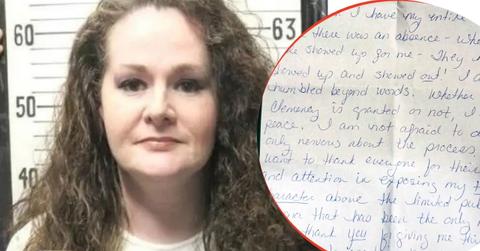 60
50
40
63
I have my entire
there was an absence -
showed up for me - They
showed up and showed out! I
humbled beyond words. Whether
Clemency is granted or not, I
peace. I am not afraid to
only nervous about the process
want to thank everyone for their
and attention in exposing my
character above the limited
that has been the only
thank you for giving me